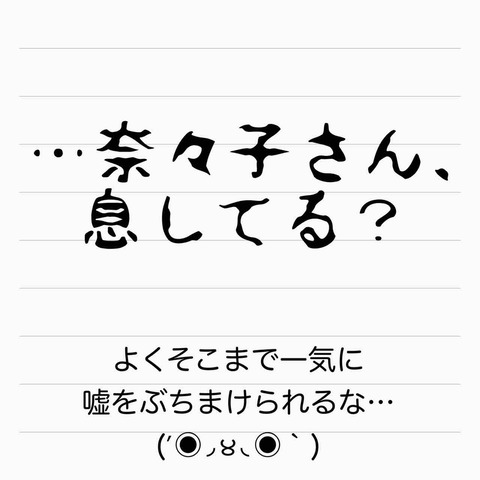 …奈々子さん、
息してる?
よくそこまで一気に
嘘をぶちまけられるな…
(′◉◞౪◟◉｀)